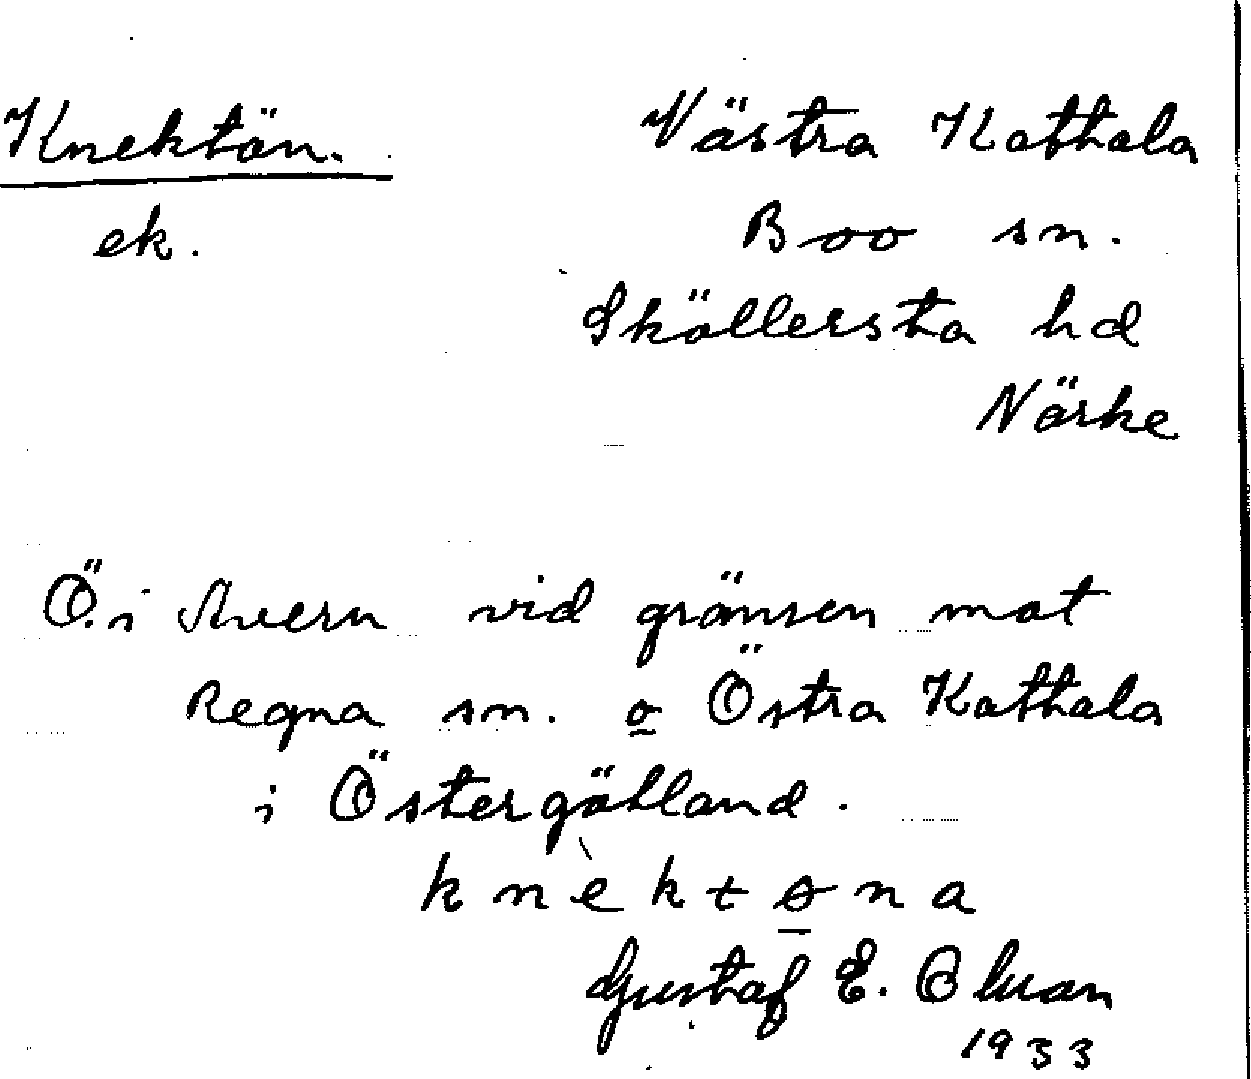 Knektön. Västra Katthala
ek. Boo sn.
Sköllersta hd
Närke
Ö. i Avern vid gränsen mot
Regna sn. o Östra Katthala
i Östergötland.
knèktɵna
Gustaf E. Olsson
1933